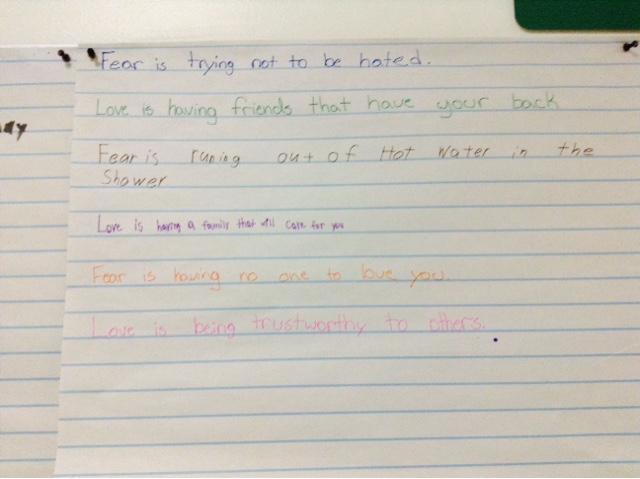 Fear is trying not to be hated.
Love is having friends that have your back
Fear is runing out of Hot Water in the
Shower
Love is having a family that will care for you
Fear is having no one to love you.
Love is being trustworthy to others.
ay